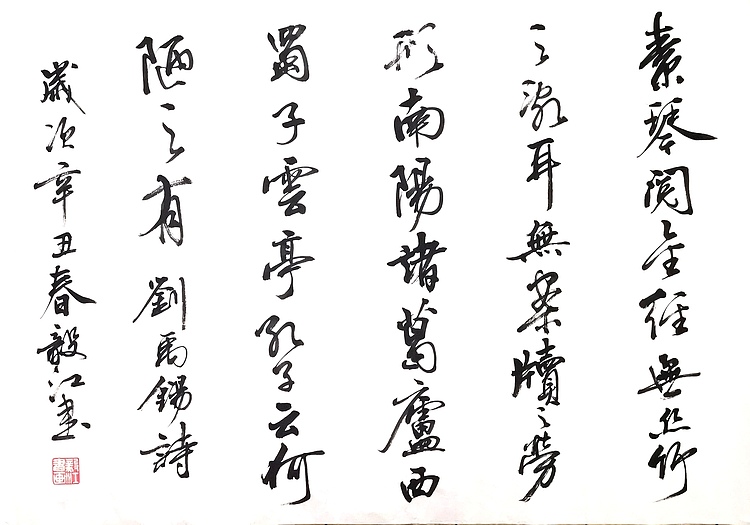 素琴閱金經無絲竹
之亂耳無案牘之勞
形南陽諸葛廬西
蜀子雲亭孔子云何
陋之有 劉禹錫詩
歲次辛丑春毅江書